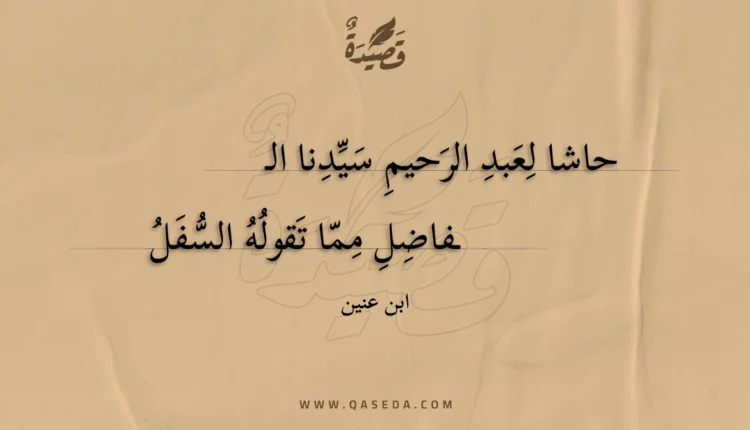 قَصِيْدَةٌ
حاشا لِعَبدِ الرَحيمِ سَيِّدِنا الـ
ـفاضِلِ مِمّا تَقولُهُ السُّفَلُ
ابن عنين
WWW.QASEDA.COM